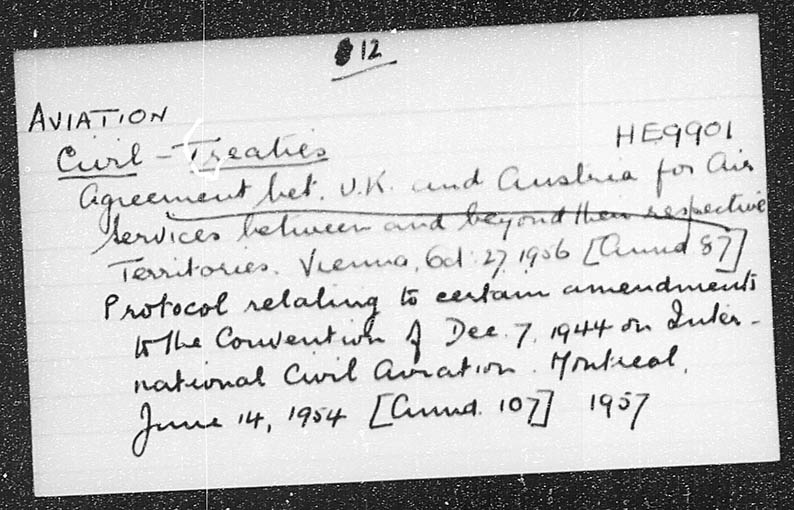 12
AVIATION
Civil - Treaties HE9901
Agreement bet. U.K. and Austria for Air
Services between and beyond their respective
Territories. Vienna, Oct. 27, 1956 [Cmnd 87]
Protocol relating to certain amendments
to the Convention of Dec. 7, 1944 on Inter-
national Civil Aviation. Montreal,
June 14, 1954 [Cmnd. 107] 1957